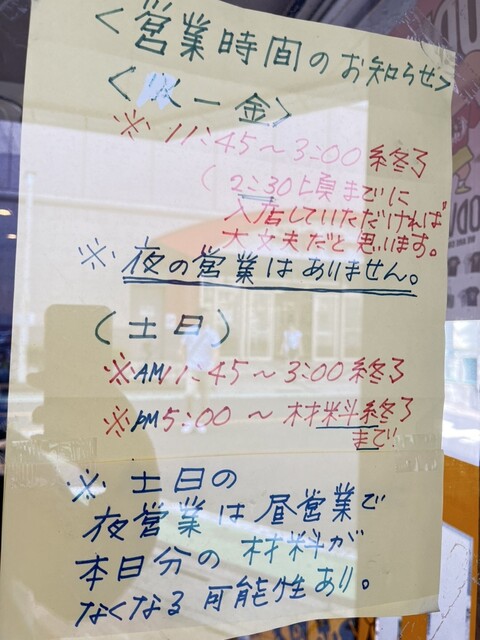 <営業時間のお知らせ>
<火ー金>
※ 11:45～3:00 終了
(2:30頃までに
入店していただければ
大丈夫だと思います。
※ 夜の営業はありません。
(土日)
※AM11:45～3:00 終了
※PM5:00～材料終了
まで
※ 土日の
夜営業は昼営業で
本日分の材料が
なくなる可能性あり。